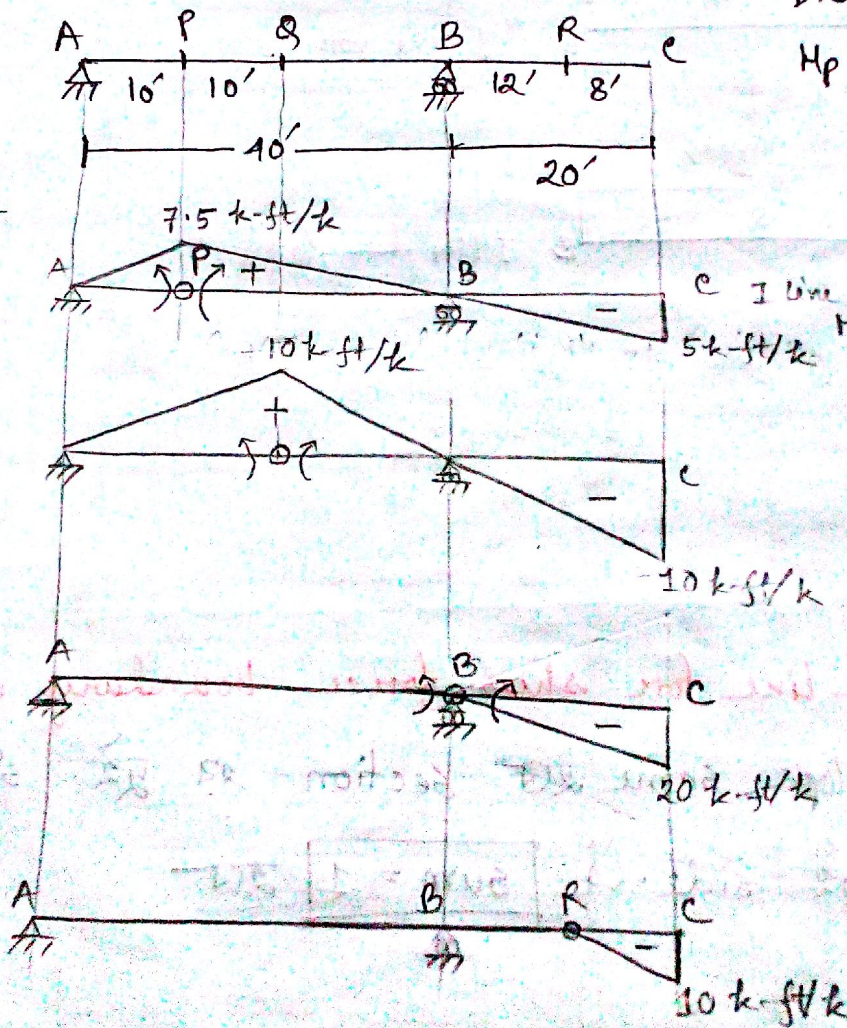 A P Q B R C
Mp
10' 10' 12' 8'
40'
20'
7.5 k-ft/k
A P + B C I line
-
5k-ft/k
10k-ft/k
+
C
-
-10k-ft/k
A B C
-
20 k-ft/k
A B R C
-
10 k-ft/k